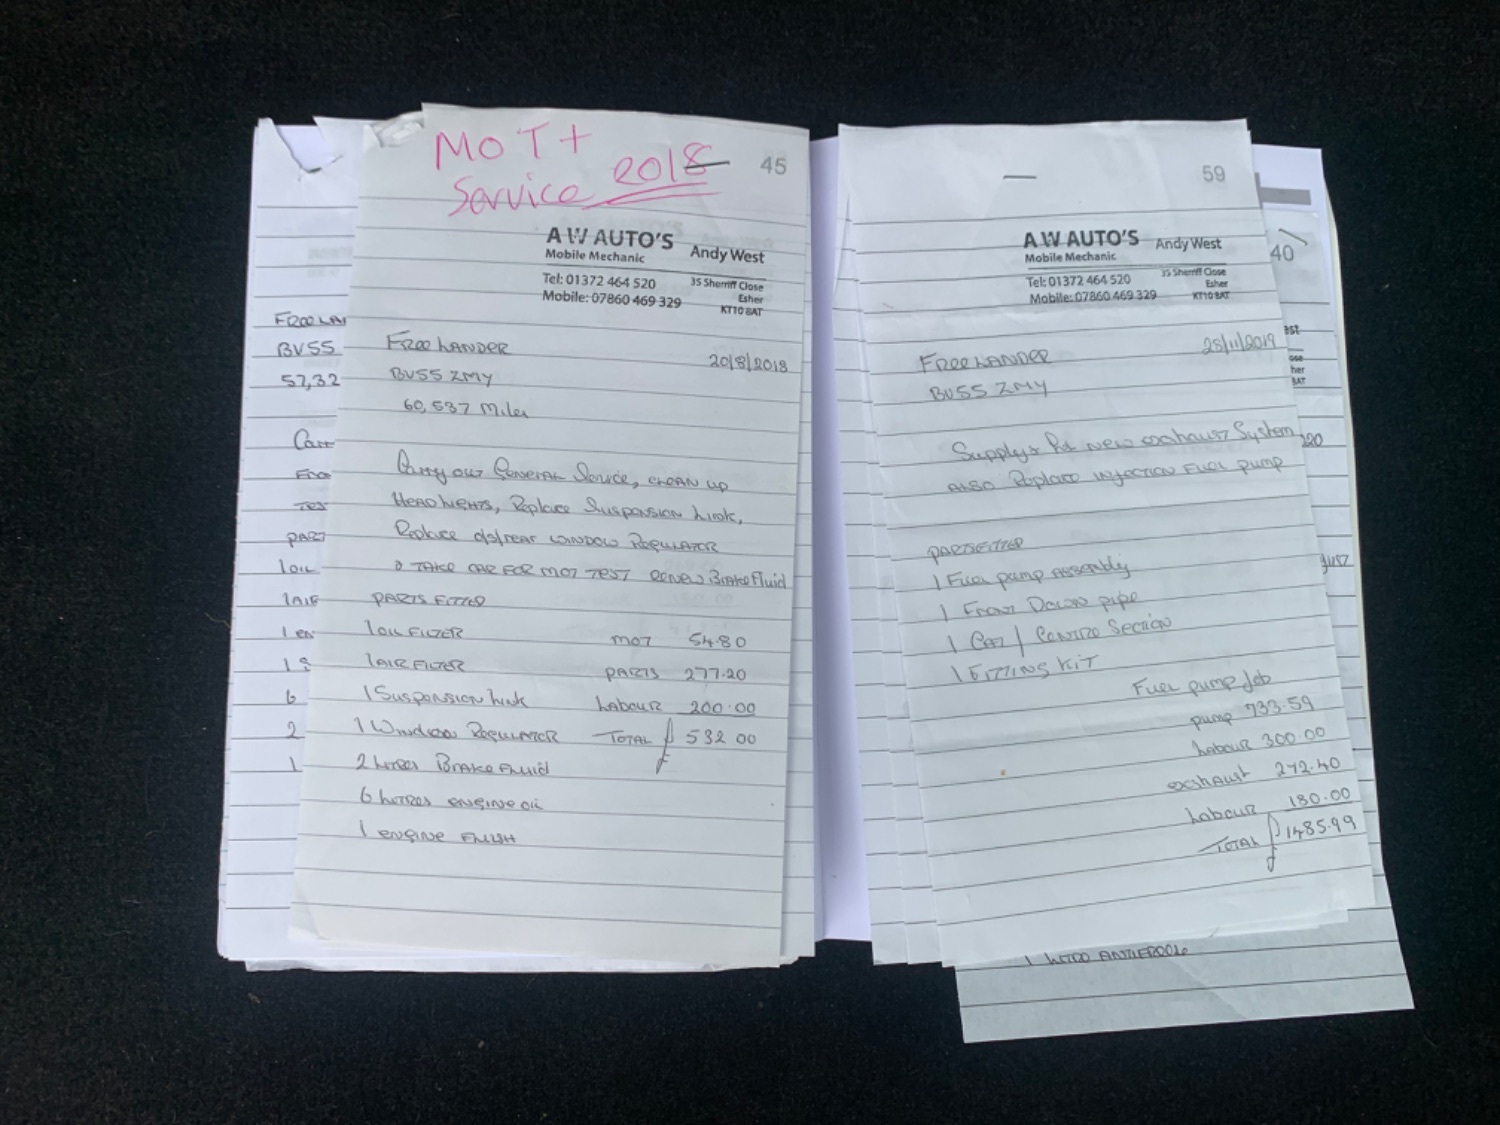 MOT +
Service 2018
45
A W AUTO'S Andy West
Mobile Mechanic
Tel: 01372 464 520 35 Sherriff Close
Mobile: 07860 469 329 Esher
KT10 8AT
FREELANDER 20/8/2018
BV55 ZMY
60,537 Miles
Carry out General Service, CLEAN UP
HEADLIGHTS, Replace Suspension Link,
Replace d/s/rear WINDOW REGULATOR
& TAKE CAR FOR MOT TEST RENEW Brake Fluid
PARTS FITTED
1 OIL FILTER MOT 54.80
1 AIR FILTER PARTS 277.20
1 Suspension Link Labour 200.00
1 Window Regulator TOTAL £ 532 00
2 Litres Brake Fluid
6 Litres engine oil
1 engine FLUSH
FREELA
BV55
57,32
PART
1 OIL
1 AIR
1 en
1 S
6
2
1
59
A W AUTO'S Andy West
Mobile Mechanic
Tel: 01372 464 520 35 Sherriff Close
Mobile: 07860 469 329 Esher
KT10 8AT
FREELANDER 28/11/2019
BV55 ZMY
Supply & Fit NEW exhaust System
ALSO Replace INJECTION FUEL pump
PARTS FITTED
1 Fuel pump Assembly
1 Front Down pipe
1 CAT / CENTRE SECTION
1 FITTING KIT
Fuel pump Job
pump 733.59
Labour 300.00
exhaust 272.40
Labour 180.00
TOTAL £ 1485.99
40
est
ose
her
8AT
1 LITRE ANTIFREEZE